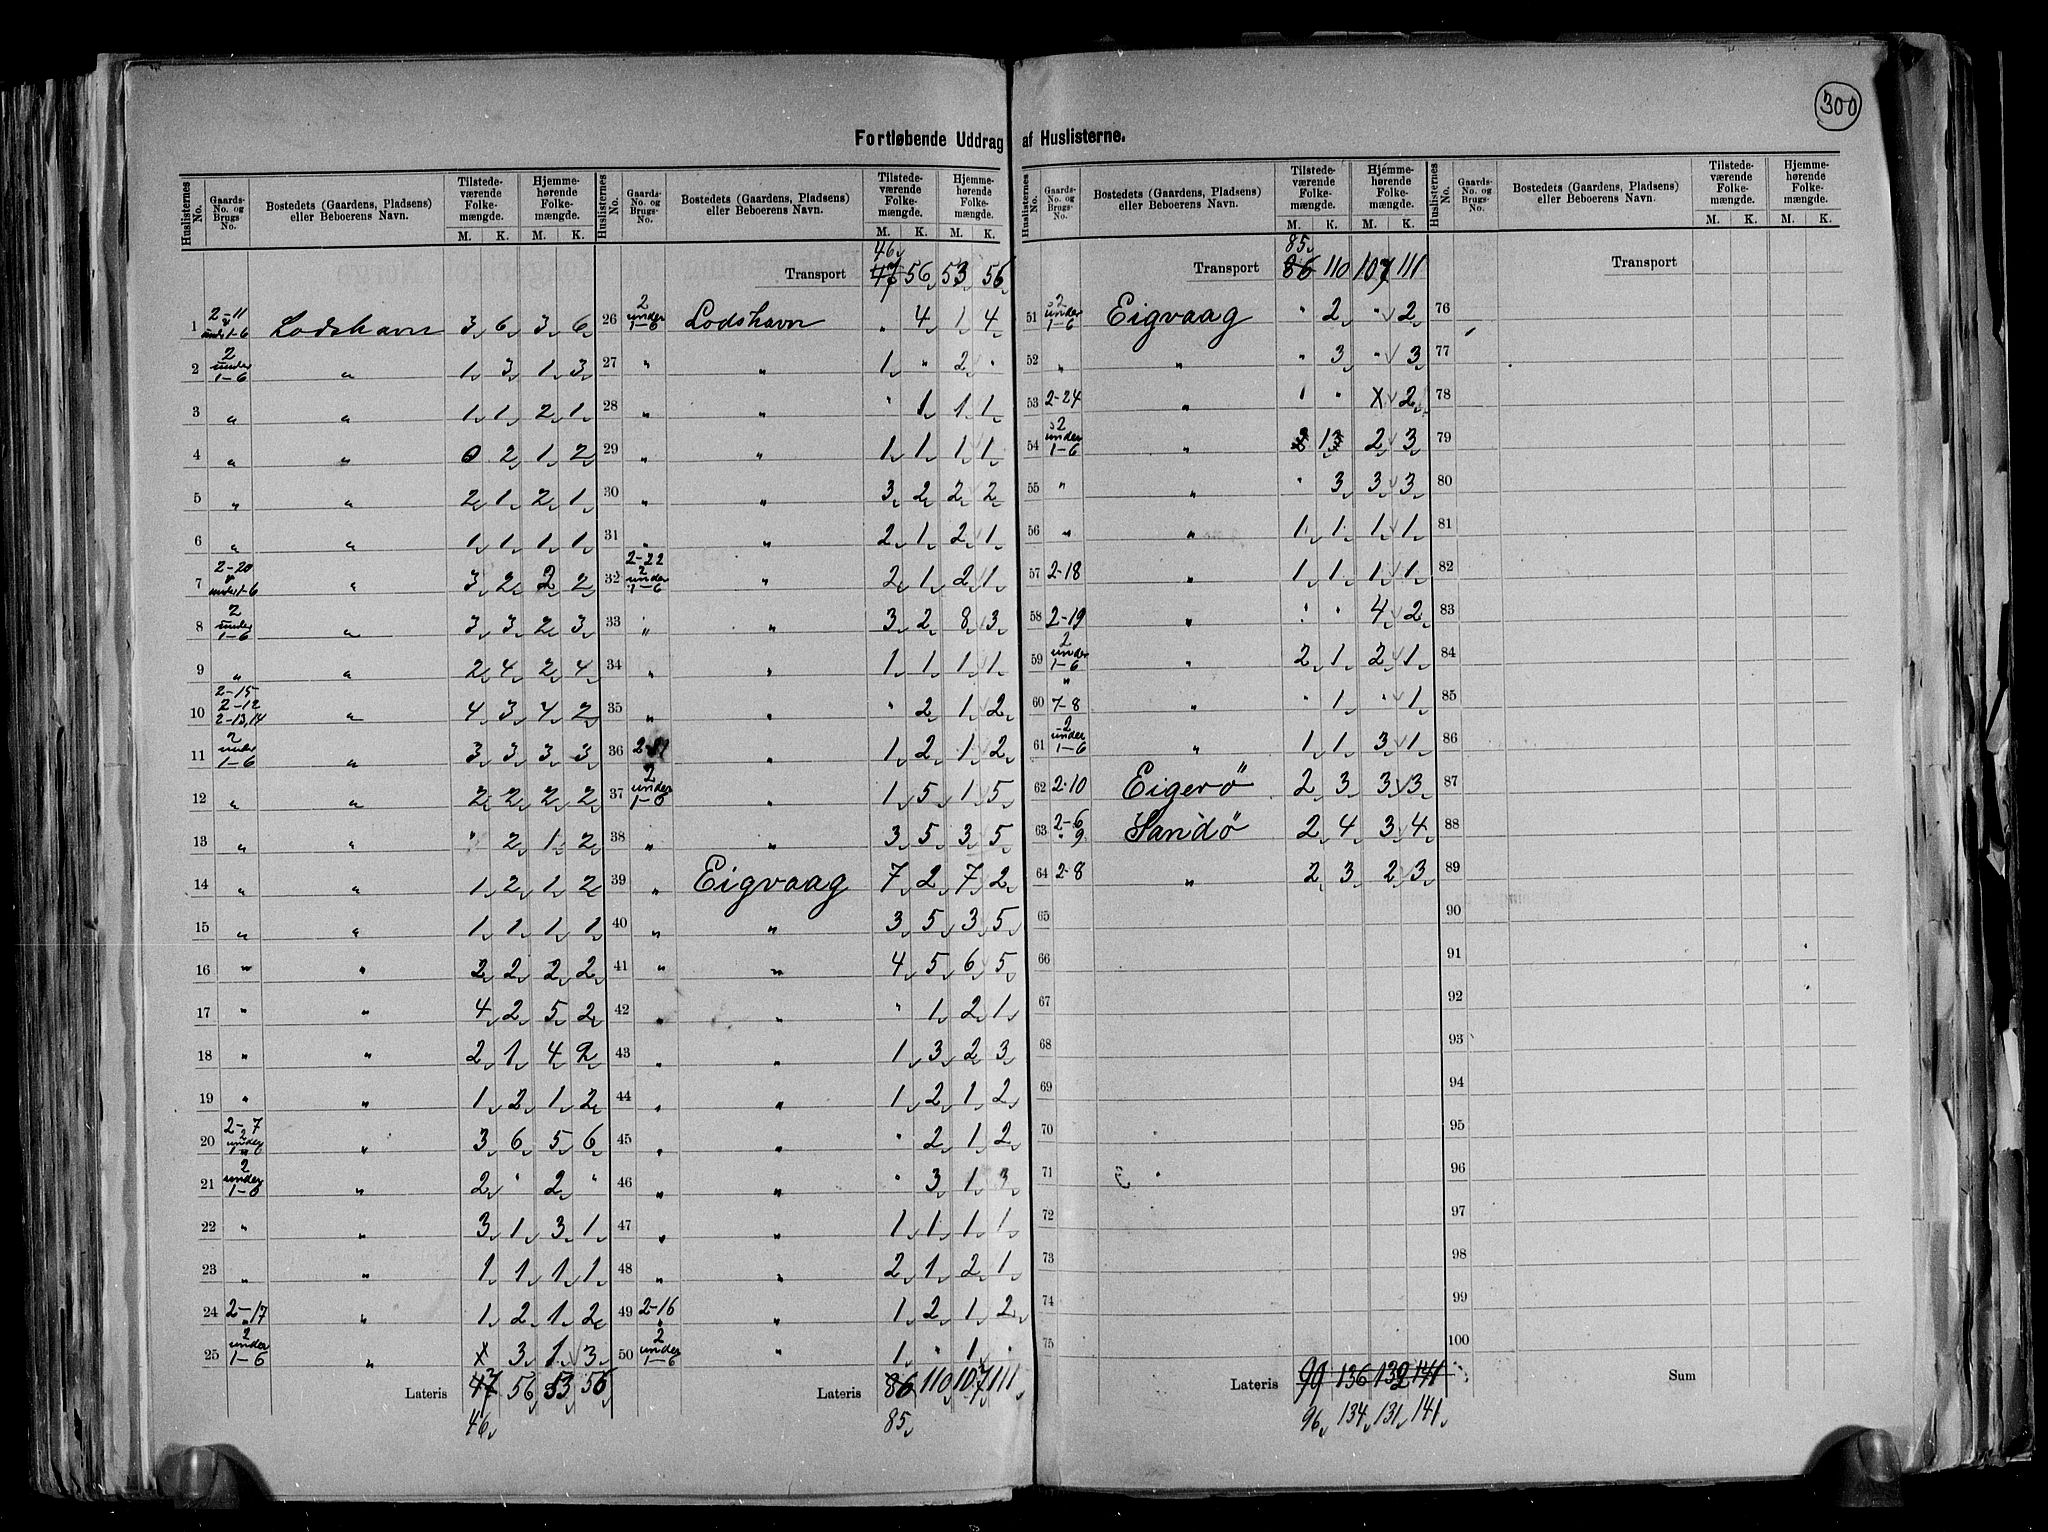 300
Fortløbende Uddrag af Huslisterne.
Huslisternes No. | Gaards-No. og Brugs-No. | Bostedets (Gaardens, Pladsens) eller Beboerens Navn. | Tilstedeværende Folkemængde. M. K. | Hjemmehørende Folkemængde. M. K.
1 | 2-11 " under 1-6 | Lodshavn | 3 | 6 | 3 | 6
2 | 2 under 1-6 | " | 1 | 3 | 1 | 3
3 | " | " | 1 | 1 | 2 | 1
4 | " | " | 0 | 2 | 1 | 2
5 | " | " | 2 | 1 | 2 | 1
6 | " | " | 1 | 1 | 1 | 1
7 | 2-20 " under 1-6 | " | 3 | 2 | 2 | 2
8 | 2 under 1-6 | " | 3 | 3 | 2 | 3
9 | " | " | 2 | 4 | 2 | 4
10 | 2-15 2-12 2-13,14 | " | 4 | 3 | 4 | 2
11 | 2 under 1-6 | " | 3 | 3 | 3 | 3
12 | " | " | 2 | 2 | 2 | 2
13 | " | " | " | 2 | 1 | 2
14 | " | " | 1 | 2 | 1 | 2
15 | " | " | 1 | 1 | 1 | 1
16 | " | " | 2 | 2 | 2 | 2
17 | " | " | 4 | 2 | 5 | 2
18 | " | " | 2 | 1 | 4 | 2
19 | " | " | 1 | 2 | 1 | 2
20 | 2-7 2 under 1-6 | " | 3 | 6 | 5 | 6
21 | 2 under 1-6 | " | 2 | " | 2 | "
22 | " | " | 3 | 1 | 3 | 1
23 | " | " | 1 | 1 | 1 | 1
24 | 2-17 | " | 1 | 2 | 1 | 2
25 | " 2 under 1-6 | " | x | 3 | 1 | 3
Lateris | 47 | 56 | 53 | 56
46
Huslisternes No. | Gaards-No. og Brugs-No. | Bostedets (Gaardens, Pladsens) eller Beboerens Navn. | Tilstedeværende Folkemængde. M. K. | Hjemmehørende Folkemængde. M. K.
46
Transport | 47 | 56 | 53 | 56
26 | 2 under 1-6 | Lodshavn | " | 4 | 1 | 4
27 | " | " | 1 | " | 2 | "
28 | " | " | " | 1 | 1 | 1
29 | " | " | 1 | 1 | 1 | 1
30 | " | " | 3 | 2 | 2 | 2
31 | " | " | 2 | 1 | 2 | 1
32 | 2-22 2 under 1-6 | " | 2 | 1 | 2 | 1
33 | " | " | 3 | 2 | 8 | 3
34 | " | " | 1 | 1 | 1 | 1
35 | " | " | " | 2 | 1 | 2
36 | " | 1 | 2 | 1 | 2
37 | 2 under 1-6 | " | 1 | 5 | 1 | 5
38 | " | " | 3 | 5 | 3 | 5
39 | " | Eigvaag | 7 | 2 | 7 | 2
40 | " | " | 3 | 5 | 3 | 5
41 | " | " | 4 | 5 | 6 | 5
42 | " | " | " | 1 | 2 | 1
43 | " | " | 1 | 3 | 2 | 3
44 | " | " | 1 | 2 | 1 | 2
45 | " | " | " | 2 | 1 | 2
46 | " | " | " | 3 | 1 | 3
47 | " | " | 1 | 1 | 1 | 1
48 | " | " | 2 | 1 | 2 | 1
49 | 2-16 | " | 1 | 2 | 1 | 2
50 | " 2 under 1-6 | " | 1 | " | 1 | "
Lateris | 86 | 110 | 107 | 111
85
Huslisternes No. | Gaards-No. og Brugs-No. | Bostedets (Gaardens, Pladsens) eller Beboerens Navn. | Tilstedeværende Folkemængde. M. K. | Hjemmehørende Folkemængde. M. K.
85
Transport | 86 | 110 | 107 | 111
51 | 2 under 1-6 | Eigvaag | " | 2 | " | 2
52 | " | " | " | 3 | " | 3
53 | 2-24 | " | 1 | " | x | 2
54 | 2 under 1-6 | " | 2 | 3
55 | " | " | " | 3 | 3 | 3
56 | " | " | 1 | 1 | 1 | 1
57 | 2-18 | " | 1 | 1 | 1 | 1
58 | 2-19 | " | " | " | 4 | 2
59 | 2 under 1-6 | " | 2 | 1 | 2 | 1
60 | " 7-8 | " | " | 1 | " | 1
61 | 2 under 1-6 | " | 1 | 1 | 3 | 1
62 | 2-10 | Eigerö | 2 | 3 | 3 | 3
63 | 2-6 " 9 | Sandö | 2 | 4 | 3 | 4
64 | 2-8 | " | 2 | 3 | 2 | 3
65
66
67
68
69
70
71
72
73
74
75
Lateris | 99 | 136 | 132 | 141
96 | 134 | 131 | 141
Huslisternes No. | Gaards-No. og Brugs-No. | Bostedets (Gaardens, Pladsens) eller Beboerens Navn. | Tilstedeværende Folkemængde. M. K. | Hjemmehørende Folkemængde. M. K.
Transport
76
77
78
79
80
81
82
83
84
85
86
87
88
89
90
91
92
93
94
95
96
97
98
99
100
Sum